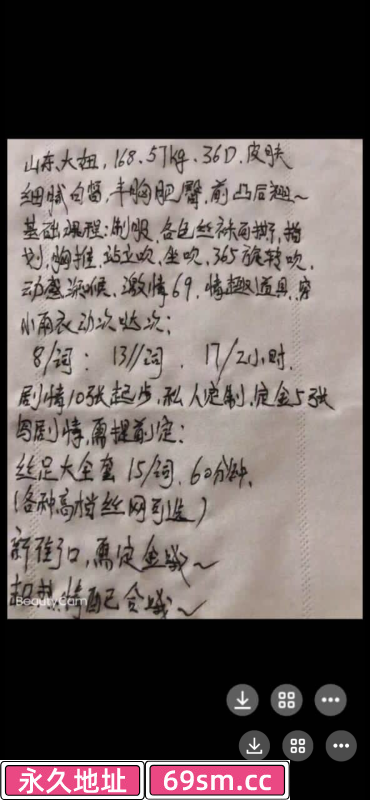 山东大妞,168.57kg.36D.皮肤
细腻白皙,丰胸肥臀,前凸后翘~
基础课程:制服,各色丝袜可撕,指
划,胸推,站立吹,坐吹,365旋转吹,
动感深喉,激情69,情趣道具,穿
小雨衣动次哒次;
8/词; 13//词, 17/2小时.
剧情10张起步,私人定制,定金5张
剧情,需提前定;
丝足大全套 15/词,60分钟,
(各种高档丝网可选)
新街口,需定金哦~
哦~
BeautyCam
永久地址 69sm.cc